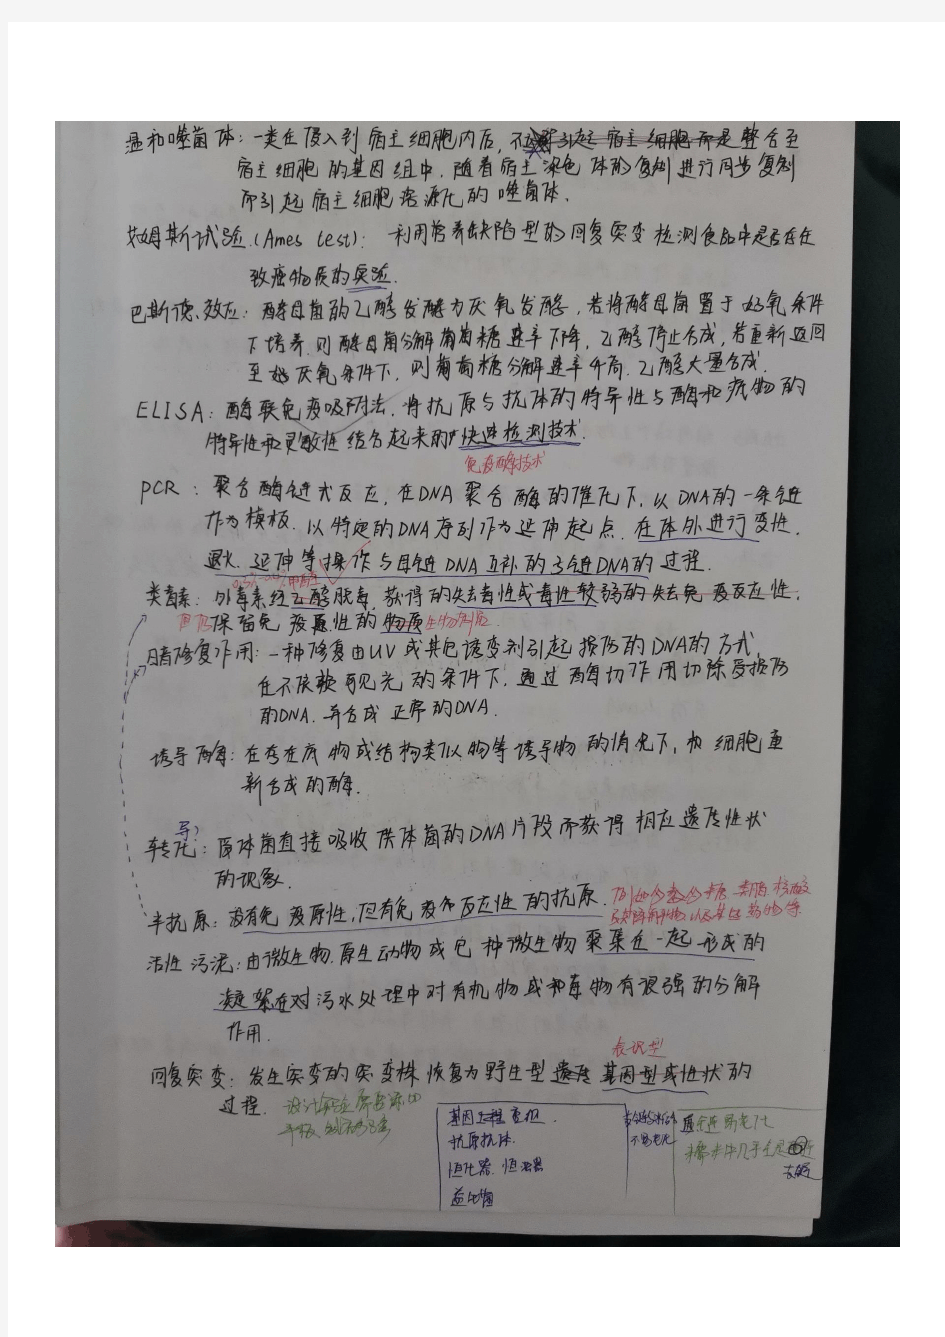 温和噬菌体：一类在侵入到宿主细胞内后，不引起宿主细胞而是整合至
宿主细胞的基因组中，随着宿主染色体的复制进行同步复制
而引起宿主细胞溶源化的噬菌体．
艾姆斯试验．(Ames test)：利用营养缺陷型的回复突变检测食品中是否存在
致癌物质的实验．
巴斯德效应：酵母菌的乙醇发酵为厌氧发酵，若将酵母菌置于好氧条件
下培养．则酵母菌分解葡萄糖速率下降，乙醇停止合成，若重新返回
至厌氧条件下，则葡萄糖分解速率升高．乙醇大量合成．
ELISA：酶联免疫吸附法．将抗原与抗体的特异性与酶和底物的
特异性和灵敏性结合起来的快速检测技术．
免疫酶技术
PCR：聚合酶链式反应，在DNA聚合酶的催化下，以DNA的一条链
作为模板．以特定的DNA序列作为延伸起点．在体外进行变性．
退火．延伸等操作与母链DNA互补的子链DNA的过程．
甲醛
类毒素：外毒素经乙醇脱毒，获得的失去毒性或毒性较弱的失去免疫反应性．
保留免疫原性的物质 生物制品
暗修复作用：一种修复由UV或其它诱变剂引起损伤的DNA的方式，
在不依赖可见光的条件下．通过酶切作用切除受损伤
的DNA．并合成正常的DNA．
诱导酶：在存在底物或结构类似物等诱导物的情况下，由细胞重
新合成的酶．
导？
转化：受体菌直接吸收供体菌的DNA片段而获得相应遗传性状
的现象．
半抗原：没有免疫原性，但有免疫反应性的抗原．
活性污泥：由微生物．原生动物或它种微生物聚集在一起形成的
凝絮在对污水处理中对有机物或和毒物有很强的分解
作用．
表现型
回复突变：发生突变的突变株恢复为野生型遗传基因型或性状的
过程．
基因工程
抗原抗体．
恒化器．恒浊器